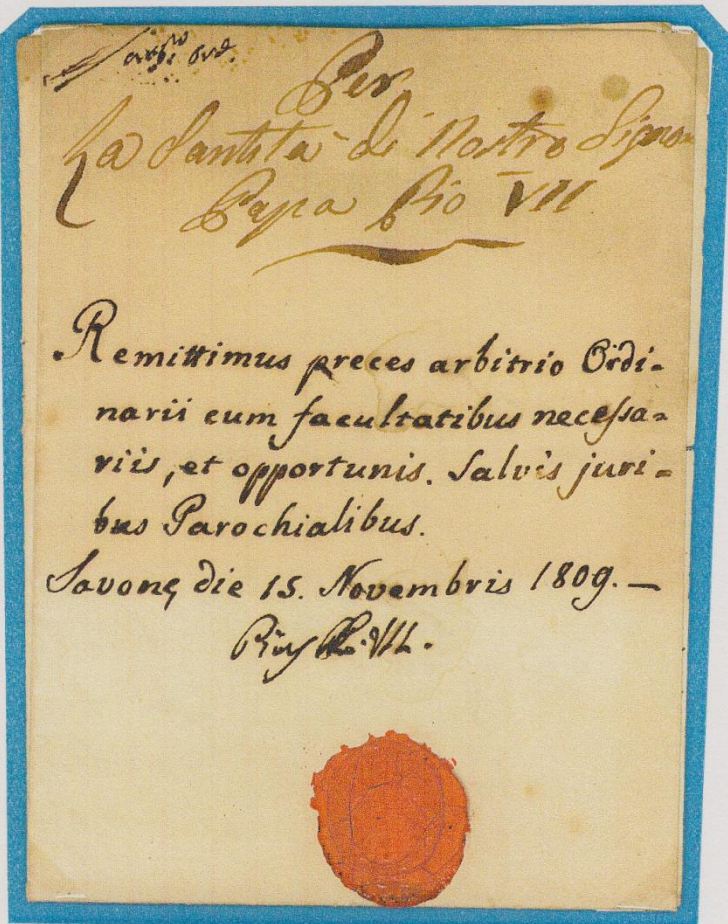 arb.º Ord.
Per
La Santità di Nostro Signo
Papa Pio VII
Remittimus preces arbitrio Ordi-
narii cum facultatibus necessa-
riis, et opportunis. Salvis juri-
bus Parochialibus.
Savonę die 15. Novembris 1809. —
Pius PP. VII.